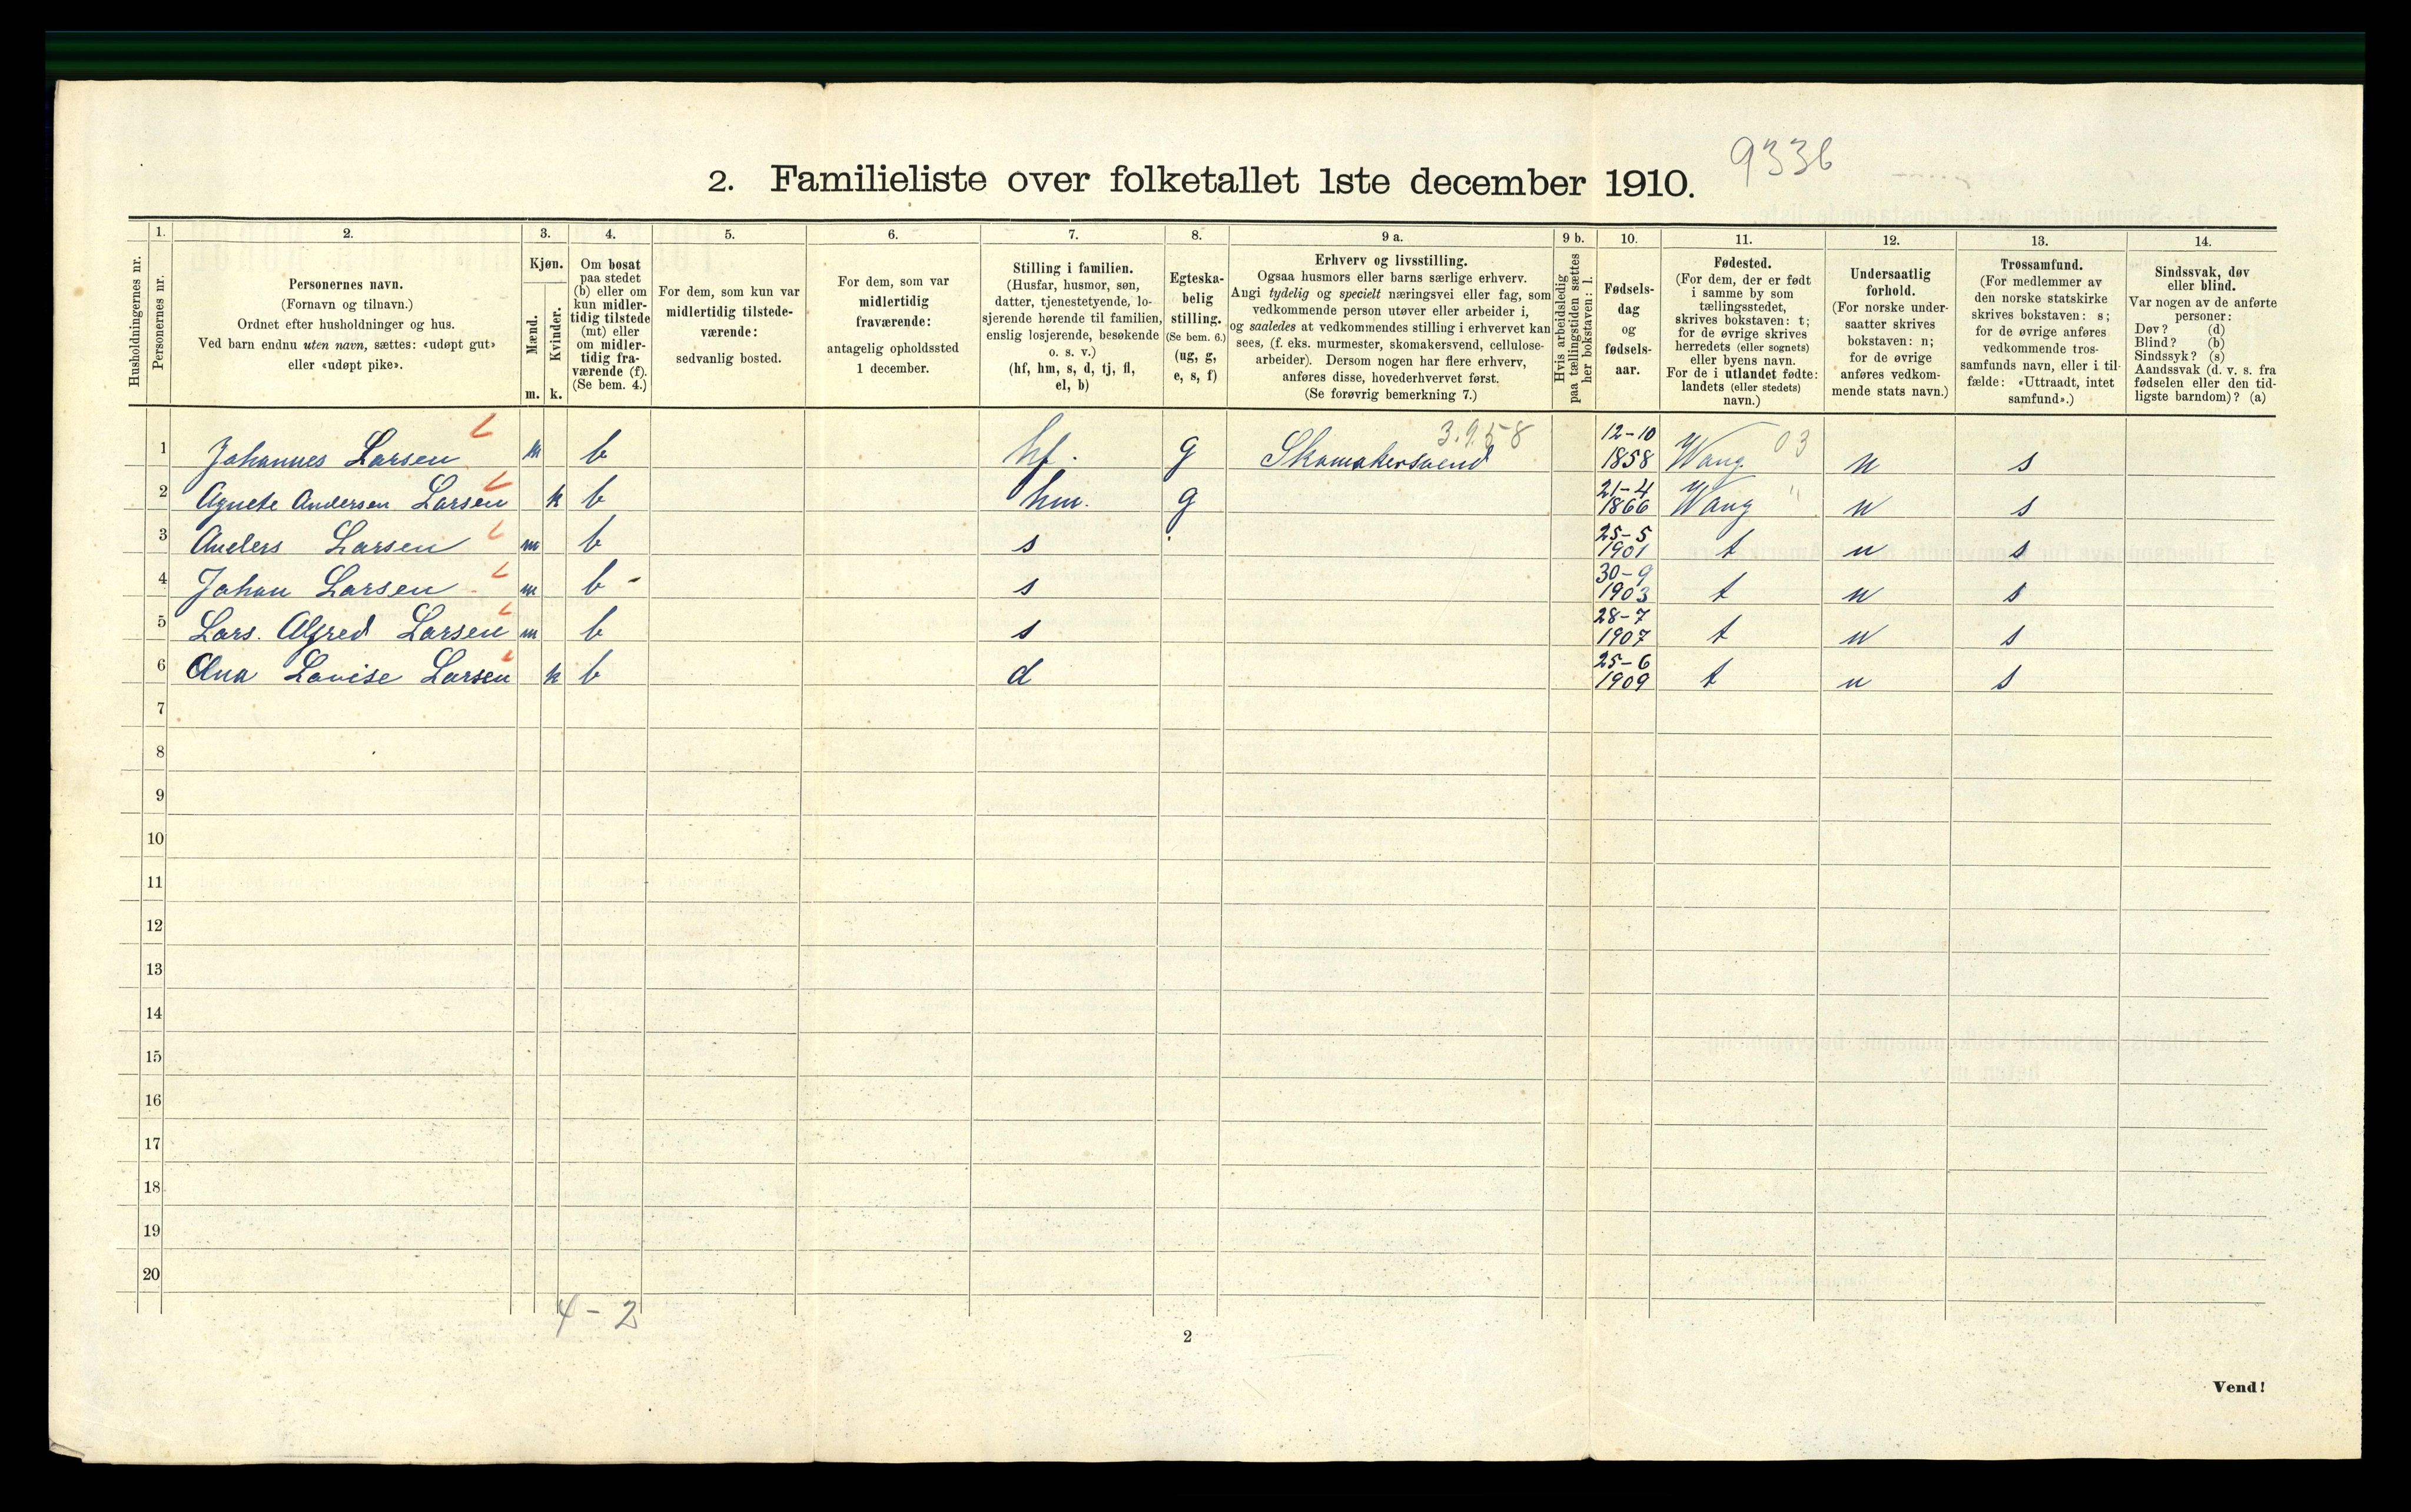 9336
2. Familieliste over folketallet 1ste december 1910.
Husholdningernes nr.
1.
Personernes nr.
2.
Personernes navn.
(Fornavn og tilnavn.)
Ordnet efter husholdninger og hus.
Ved barn endnu uten navn, sættes: «udøpt gut»
eller «udøpt pike».
3.
Kjøn.
Mænd.
Kvinder.
m. k.
4.
Om bosat
paa stedet
(b) eller om
kun midler-
tidig tilstede
(mt) eller
om midler-
tidig fra-
værende (f).
(Se bem. 4.)
5.
For dem, som kun var
midlertidig tilstede-
værende:
sedvanlig bosted.
6.
For dem, som var
midlertidig
fraværende:
antagelig opholdssted
1 december.
7.
Stilling i familien.
(Husfar, husmor, søn,
datter, tjenestetyende, lo-
sjerende hørende til familien,
enslig losjerende, besøkende
o. s. v.)
(hf, hm, s, d, tj, fl,
el, b)
8.
Egteska-
belig
stilling.
(Se bem. 6.)
(ug, g,
e, s, f)
9 a.
Erhverv og livsstilling.
Ogsaa husmors eller barns særlige erhverv.
Angi tydelig og specielt næringsvei eller fag, som
vedkommende person utøver eller arbeider i,
og saaledes at vedkommendes stilling i erhvervet kan
sees, (f. eks. murmester, skomakersvend, cellulose-
arbeider). Dersom nogen har flere erhverv,
anføres disse, hovederhvervet først.
(Se forøvrig bemerkning 7.)
9 b.
Hvis arbeidsledig
paa tællingstiden sættes
her bokstaven: l.
10.
Fødsels-
dag
og
fødsels-
aar.
11.
Fødested.
(For dem, der er født
i samme by som
tællingsstedet,
skrives bokstaven: t;
for de øvrige skrives
herredets (eller sognets)
eller byens navn.
For de i utlandet fødte:
landets (eller stedets)
navn.)
12.
Undersaatlig
forhold.
(For norske under-
saatter skrives
bokstaven: n;
for de øvrige
anføres vedkom-
mende stats navn.)
13.
Trossamfund.
(For medlemmer av
den norske statskirke
skrives bokstaven: s;
for de øvrige anføres
vedkommende tros-
samfunds navn, eller i til-
fælde: «Uttraadt, intet
samfund».)
14.
Sindssvak, døv
eller blind.
Var nogen av de anførte
personer:
Døv? (d)
Blind? (b)
Sindssyk? (s)
Aandssvak (d. v. s. fra
fødselen eller den tid-
ligste barndom)? (a)
1 Johannes Larsen m b hf. g Skomakersvend 3.9.58 12-10 1858 Wang 03 n s
2 Agnete Andersen Larsen k b hm. g 21-4 1866 Wang " n s
3 Anders Larsen m b s 25-5 1901 t n s
4 Johan Larsen m b - s 30-9 1903 t n s
5 Lars. Alfred Larsen m b s 28-7 1907 t n s
6 Ana Lovise Larsen k b d 25-6 1909 t n s
7
8
9
10
11
12
13
14
15
16
17
18
19
20
4-2
2
Vend!